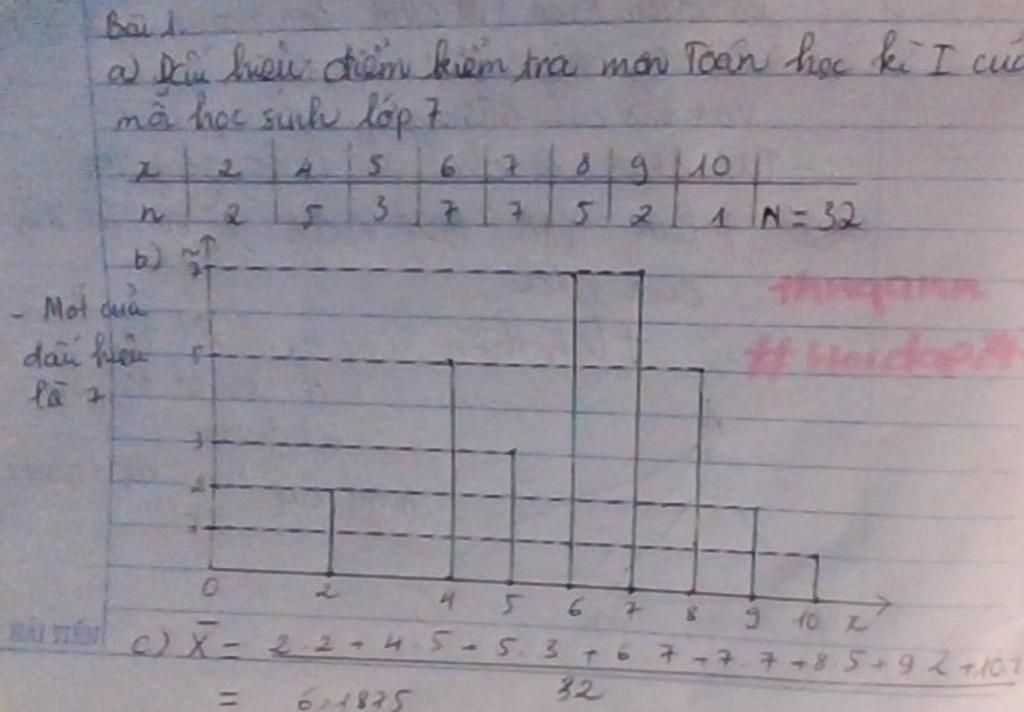 Bài 1.
a) Dấu hiệu: điểm kiểm tra môn Toán học kì I của
mỗi học sinh lớp 7
x 2 4 5 6 7 8 9 10
n 2 5 3 7 7 5 2 1 N = 32
b) n
7
- Mốt của
dấu hiệu
là 7
5
3
2
1
0 2 4 5 6 7 8 9 10 x
c) X̄ = 2.2 + 4.5 + 5.3 + 6.7 + 7.7 + 8.5 + 9.2 + 10.1
32
= 6,1875